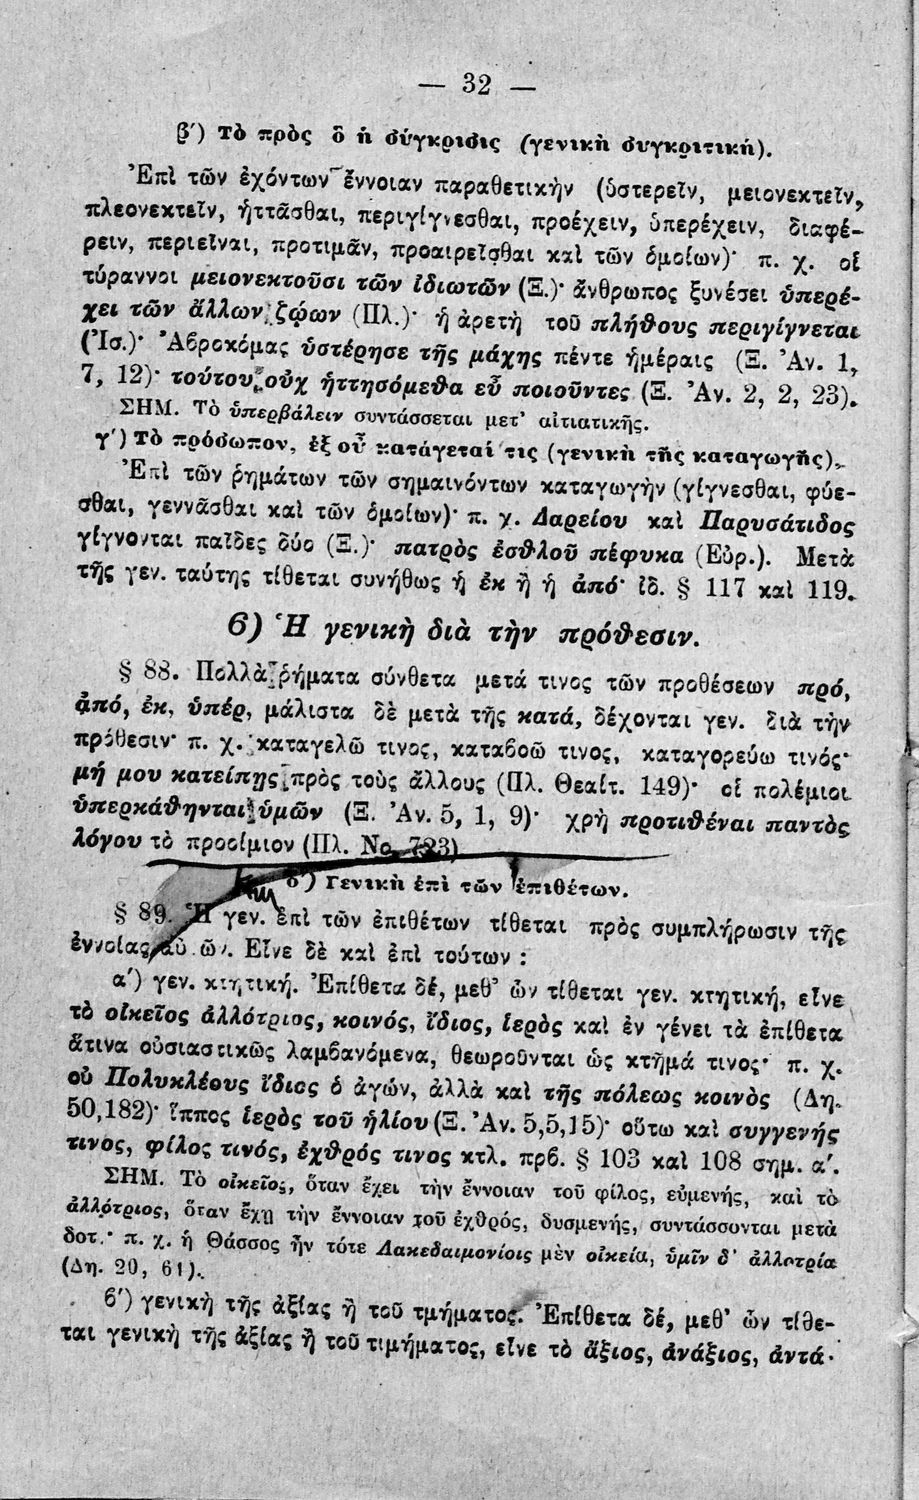 — 32 —
β′) Τὸ πρὸς ὃ ἡ σύγκρισις (γενικὴ συγκριτική).
Ἐπὶ τῶν ἐχόντων ἔννοιαν παραθετικὴν (ὑστερεῖν, μειονεκτεῖν,
πλεονεκτεῖν, ἡττᾶσθαι, περιγίγνεσθαι, προέχειν, ὑπερέχειν, διαφέ-
ρειν, περιεῖναι, προτιμᾶν, προαιρεῖσθαι καὶ τῶν ὁμοίων)· π. χ. οἱ
τύραννοι μειονεκτοῦσι τῶν ἰδιωτῶν (Ξ.)· ἄνθρωπος ξυνέσει ὑπερέ-
χει τῶν ἄλλων ζῴων (Πλ.)· ἡ ἀρετὴ τοῦ πλήθους περιγίγνεται
(Ἰσ.)· Ἀβροκόμας ὑστέρησε τῆς μάχης πέντε ἡμέραις (Ξ. Ἀν. 1,
7, 12)· τούτου οὐχ ἡττησόμεθα εὖ ποιοῦντες (Ξ. Ἀν. 2, 2, 23).
ΣΗΜ. Τὸ ὑπερβάλειν συντάσσεται μετ' αἰτιατικῆς.
γ′) Τὸ πρόσωπον, ἐξ οὗ κατάγεταί τις (γενικὴ τῆς καταγωγῆς).
Ἐπὶ τῶν ῥημάτων τῶν σημαινόντων καταγωγὴν (γίγνεσθαι, φύε-
σθαι, γεννᾶσθαι καὶ τῶν ὁμοίων)· π. χ. Δαρείου καὶ Παρυσάτιδος
γίγνονται παῖδες δύο (Ξ.)· πατρὸς ἐσθλοῦ πέφυκα (Εὐρ.). Μετὰ
τῆς γεν. ταύτης τίθεται συνήθως ἡ ἐκ ἢ ἡ ἀπό· ἰδ. § 117 καὶ 119.
6) Ἡ γενικὴ διὰ τὴν πρόθεσιν.
§ 88. Πολλὰ ῥήματα σύνθετα μετά τινος τῶν προθέσεων πρό,
ἀπό, ἐκ, ὑπέρ, μάλιστα δὲ μετὰ τῆς κατά, δέχονται γεν. διὰ τὴν
πρόθεσιν· π. χ. καταγελῶ τινος, καταβοῶ τινος, καταγορεύω τινός·
μή μου κατείπῃς πρὸς τοὺς ἄλλους (Πλ. Θεαίτ. 149)· οἱ πολέμιοι
ὑπερκάθηνται ὑμῶν (Ξ. Ἀν. 5, 1, 9)· χρὴ προτιθέναι παντὸς
λόγου τὸ προοίμιον (Πλ. Νο. 723)
δ′) Γενικὴ ἐπὶ τῶν ἐπιθέτων.
§ 89. Ἡ γεν. ἐπὶ τῶν ἐπιθέτων τίθεται πρὸς συμπλήρωσιν τῆς
ἐννοίας αὐτῶν. Εἶνε δὲ καὶ ἐπὶ τούτων :
α′) γεν. κτητική. Ἐπίθετα δέ, μεθ' ὧν τίθεται γεν. κτητική, εἶνε
τὸ οἰκεῖος ἀλλότριος, κοινός, ἴδιος, ἱερὸς καὶ ἐν γένει τὰ ἐπίθετα
ἅτινα οὐσιαστικῶς λαμβανόμενα, θεωροῦνται ὡς κτῆμά τινος· π. χ.
οὐ Πολυκλέους ἴδιος ὁ ἀγών, ἀλλὰ καὶ τῆς πόλεως κοινὸς (Δη.
50,182)· ἵππος ἱερὸς τοῦ ἡλίου (Ξ. Ἀν. 5,5,15)· οὕτω καὶ συγγενής
τινος, φίλος τινός, ἐχθρός τινος κτλ. πρβ. § 103 καὶ 108 σημ. α′.
ΣΗΜ. Τὸ οἰκεῖος, ὅταν ἔχει τὴν ἔννοιαν τοῦ φίλος, εὐμενής, καὶ τὸ
ἀλλότριος, ὅταν ἔχῃ τὴν ἔννοιαν τοῦ ἐχθρός, δυσμενής, συντάσσονται μετὰ
δοτ.· π. χ. ἡ Θάσσος ἦν τότε Λακεδαιμονίοις μὲν οἰκεία, ὑμῖν δ' ἀλλοτρία
(Δη. 20, 61).
β′) γενικὴ τῆς ἀξίας ἢ τοῦ τμήματος. Ἐπίθετα δέ, μεθ' ὧν τίθε-
ται γενικὴ τῆς ἀξίας ἢ τοῦ τιμήματος, εἶνε τὸ ἄξιος, ἀνάξιος, ἀντά-